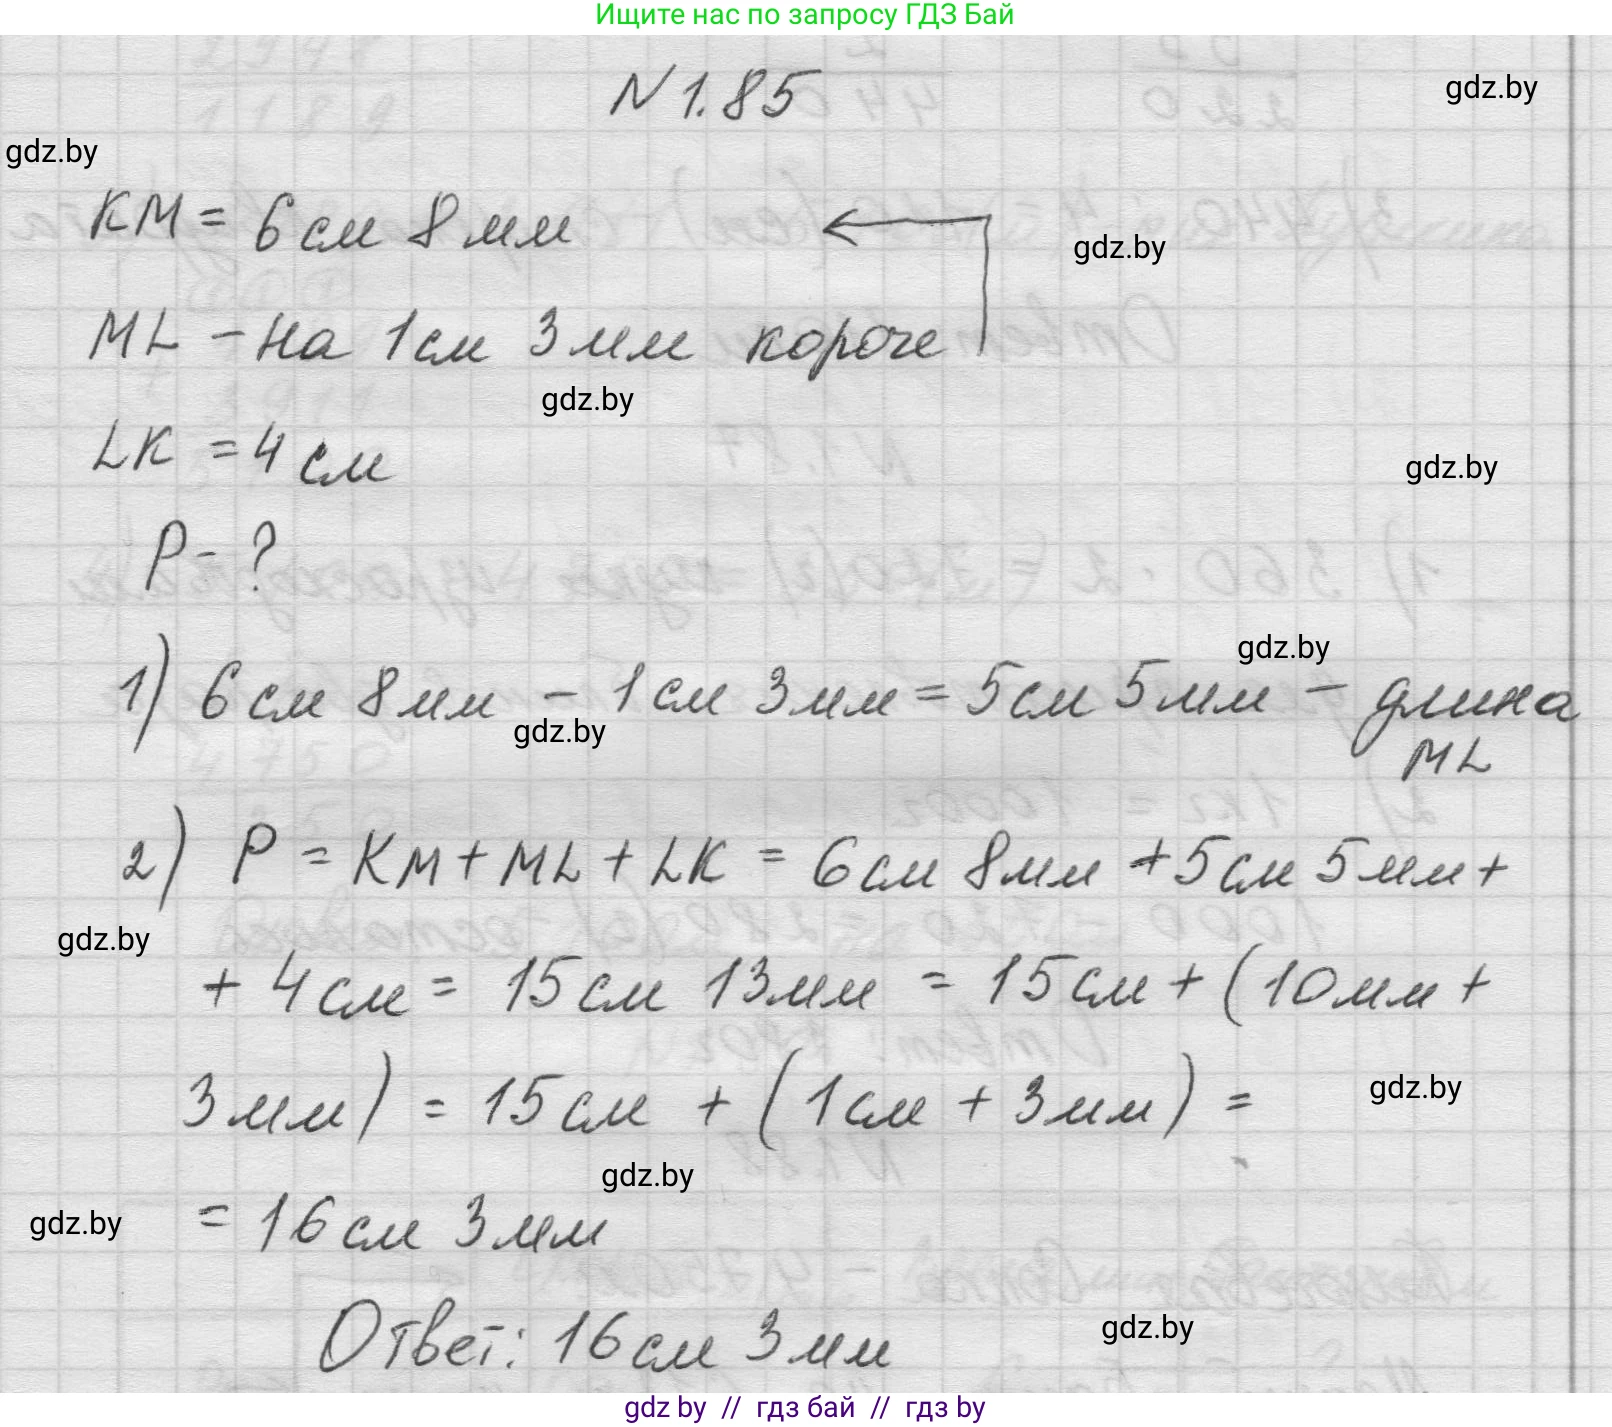 Ищите нас по запросу ГДЗ Бай
N 1.85
gdz.by
gdz.by
КМ = 6 см 8 мм
gdz.by
ML - на 1 см 3 мм короче
gdz.by
LK = 4 см
gdz.by
P - ?
gdz.by
1) 6 см 8 мм - 1 см 3 мм = 5 см 5 мм - длина
ML
gdz.by
2) P = KM + ML + LK = 6 см 8 мм + 5 см 5 мм +
gdz.by
+ 4 см = 15 см 13 мм = 15 см + (10 мм +
3 мм) = 15 см + (1 см + 3 мм) =
gdz.by
gdz.by
= 16 см 3 мм
gdz.by
Ответ: 16 см 3 мм
gdz.by
gdz by // гдз бай // гдз by